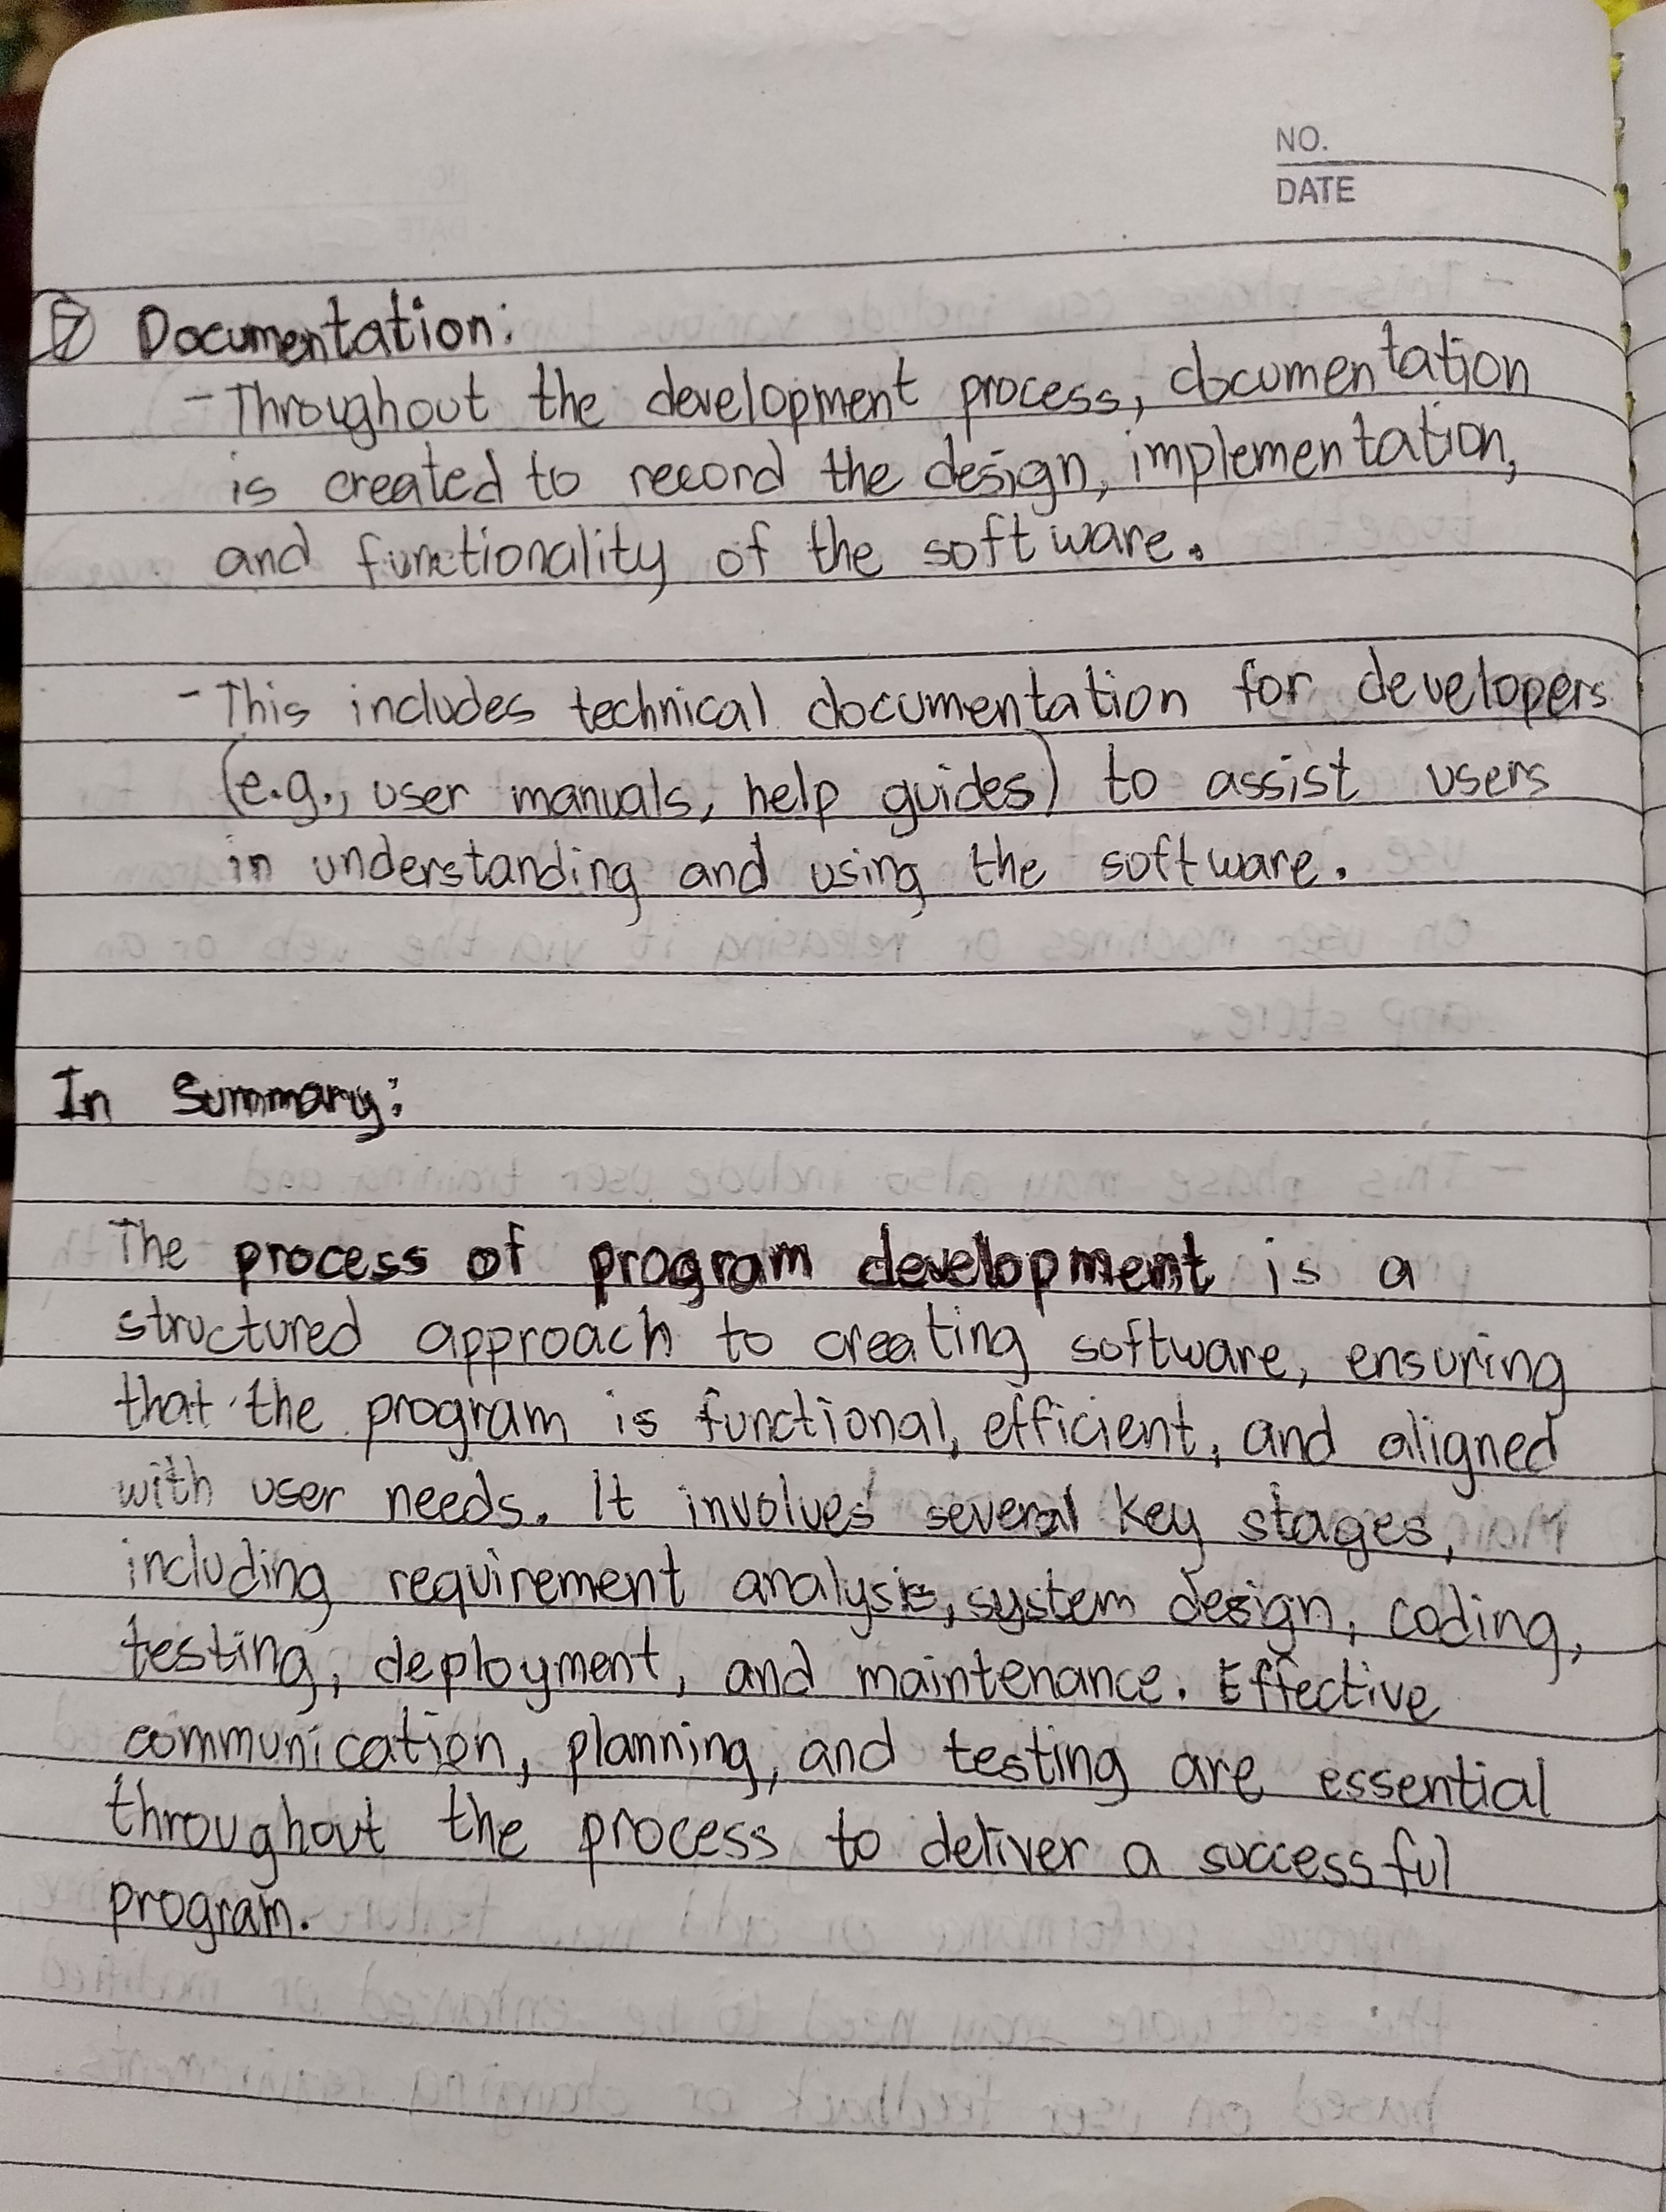 NO.
DATE
⑦ Documentation:
- Throughout the development process, documentation
is created to record the design, implementation,
and functionality of the software.
- This includes technical documentation for developers
(e.g., user manuals, help guides) to assist users
in understanding and using the software.
In Summary:
The process of program development is a
structured approach to creating software, ensuring
that the program is functional, efficient, and aligned
with user needs. It involves several key stages,
including requirement analysis, system design, coding,
testing, deployment, and maintenance. Effective
communication, planning, and testing are essential
throughout the process to deliver a successful
program.